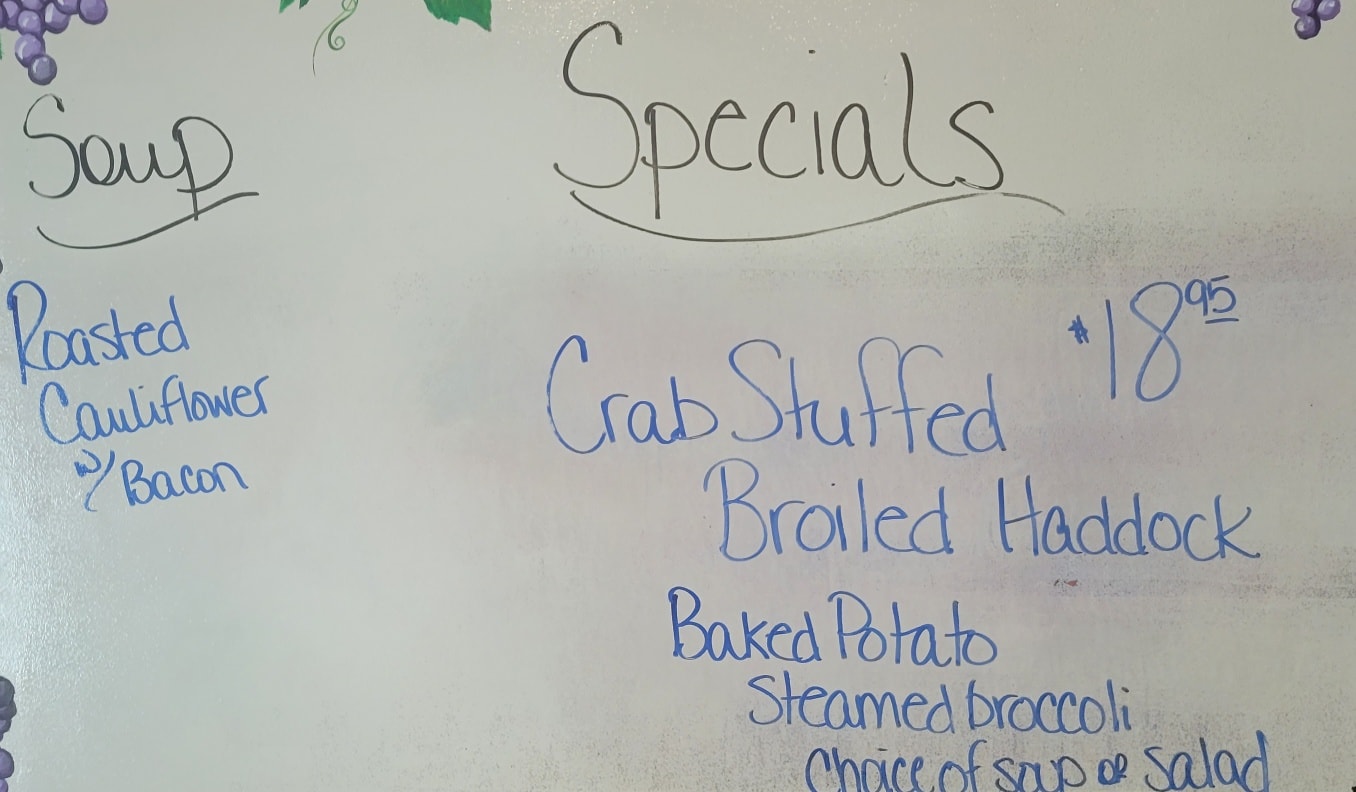 Soup
Roasted
Cauliflower
w/ Bacon
Specials
Crab Stuffed $18.95
Broiled Haddock
Baked Potato
Steamed broccoli
Choice of soup or Salad